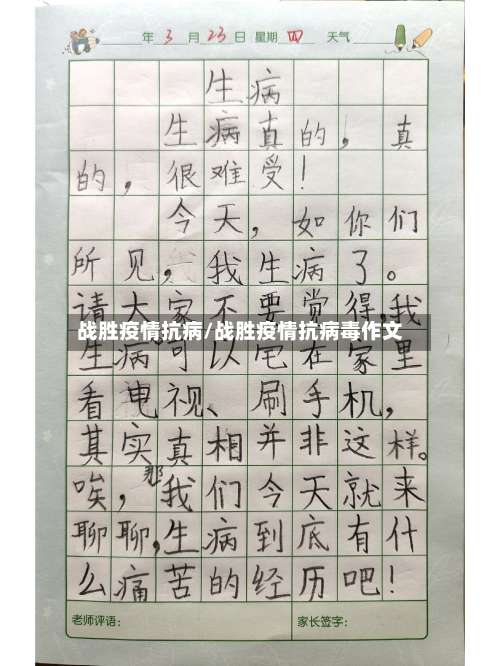 年 3 月 23 日 星期 四 天气
生病
生病真的，真
的，很难受！
今天，如你们
所见，我生病了。
请大家不要觉得，我
战胜疫情抗病/战胜疫情抗病毒作文
生病可以宅在家里
看电视、刷手机，
其实真相并非这样。
唉，那我们今天就来
聊聊，生病到底有什
么痛苦的经历吧！
老师评语： 家长签字：